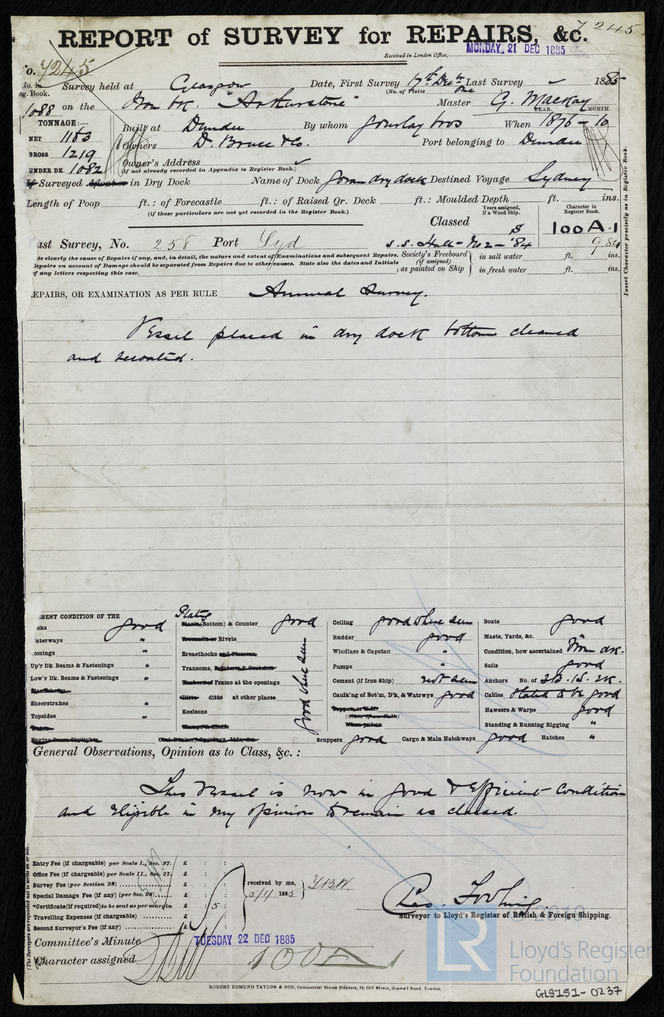 REPORT of SURVEY for REPAIRS, &c.
7245
Received in London Office,
MONDAY 21 DEC 1885
No. 7245
Survey held at Glasgow Date, First Survey 17th Decr Last Survey 1885
(No. of Visits one
Reg. Book.
1088 on the Iron bk. "Arthurstone" Master G. Mackay
YEAR. MONTH.
TONNAGE:
NET 1163
GROSS 1219
UNDER DK. 1082
Built at Dundee By whom Gourlay bros When 1876 - 10
Owners D. Bruce & Co. Port belonging to Dundee
Owner's Address
(if not already recorded in Appendix to Register Book.)
If Surveyed Afloat or in Dry Dock Name of Dock Govan dry dock Destined Voyage Sydney
Length of Poop ft.: of Forecastle ft.: of Raised Qr. Deck ft.: Moulded Depth ft. ins.
(if these particulars are not yet recorded in the Register Book.)
Classed
Years assigned, if a Wood Ship.
Character in Register Book.
100A1
9.84
Last Survey, No. 258 Port Syd s.s. Hull- No2- '84
Society's Freeboard (if assigned) as painted on Ship
in salt water ft. ins.
in fresh water ft. ins.
State clearly the cause of Repairs if any, and, in detail, the nature and extent of Examinations and subsequent Repairs.
Repairs on account of Damage should be separated from Repairs due to other causes. State also the dates and Initials
of any letters respecting this case.
Insert Character precisely as in Register Book.
REPAIRS, OR EXAMINATION AS PER RULE Annual Survey.
Vessel placed in dry dock bottom cleaned
and recoated.
PRESENT CONDITION OF THE
Decks good
Waterways "
Comings "
Up'r Dk. Beams & Fastenings "
Low'r Dk. Beams & Fastenings "
Sheerstrakes "
Topsides "
Plating (Bottom) & Counter good
Rivets
Breasthooks
Transoms,
Frame at the openings
ditto at other places
Keelsons
good where seen
Ceiling good where seen
Rudder good
Windlass & Capstan "
Pumps "
Cement (if Iron Ship) not seen
Caulk'ng of Bot'm, D'k, & Watrwys good
Scuppers good Cargo & Main Hatchways good Hatches "
Boats good
Masts, Yards, &c. "
Condition, how ascertained from dk.
Sails good
Anchors No. of 3B. 1S. 2K.
Cables stated to be good
Hawsers & Warps good
Standing & Running Rigging "
General Observations, Opinion as to Class, &c. :
This Vessel is now in good & efficient condition
and eligible in my opinion to remain as classed.
Entry Fee (if chargeable) per Scale I., Sec. 27. £ : :
Office Fee (if chargeable) per Scale II., Sec. 27. £ : :
Survey Fee (per Section 28) £ : :
Special Damage Fee (if any) (per Sec. 28) £ : :
*Certificate (if required) to be sent as per margin £ : 5 :
Travelling Expenses (if chargeable) £ : :
Second Surveyor's Fee (if any) £ : :
received by me,
Surveyor to Lloyd's Register of British & Foreign Shipping.
Committee's Minute TUESDAY 22 DEC 1885
Character assigned 100A1
ROBERT EDMUND TAYLOR & SON, Commercial Steam Printers, 19, Old Street, Goswell Road, London.
LR
Lloyd's Register
Foundation
GLS151-0237